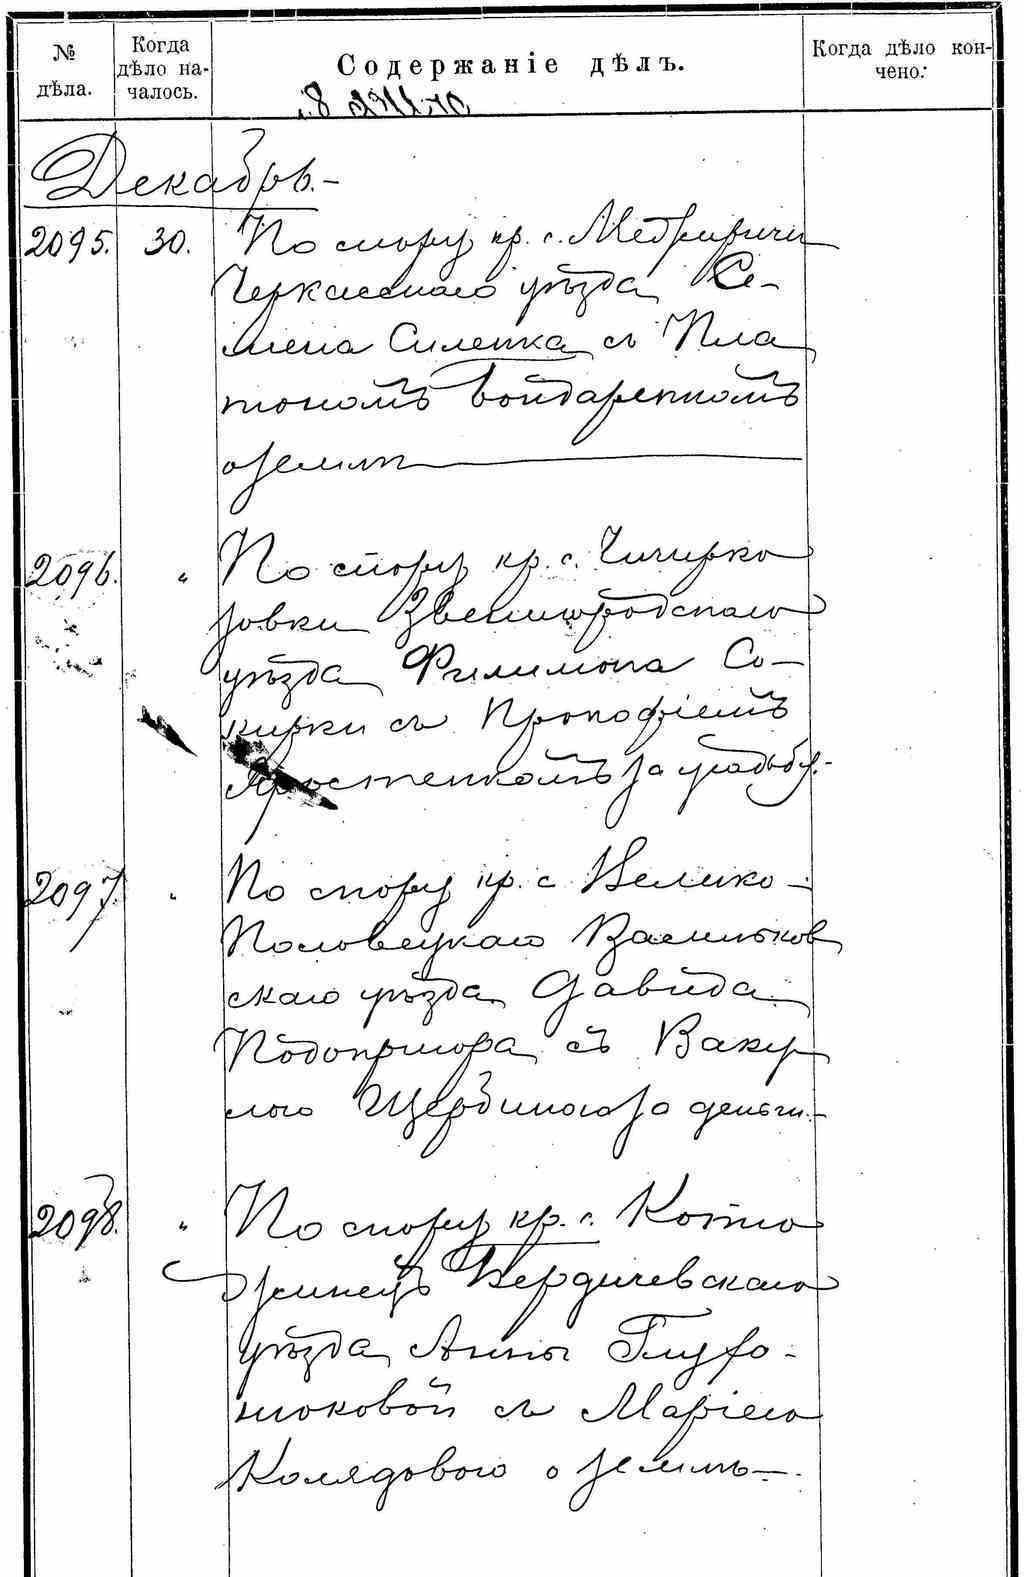 № дѣла.
Когда дѣло на-
чалось.
Содержаніе дѣлъ.
Когда дѣло кон-
чено:
Декабрь.-
2095. 30. По спору кр. с. Мебривичи
Черкасскаго уѣзда Се-
мена Силенка съ Пла
тономъ Бондаренкомъ
о землѣ
2096. " По спору кр. с. Чичирко
зовки Звенигородскаго
уѣзда Филимона Со-
кирки съ Прокофіемъ
Яростенкомъ за усадьбу.-
2097. " По спору кр. с. Велико-
Половецкаго Васильков
скаго уѣзда Давида
Подопригора съВаку
лою Щербиною за деньги.-
2098. " По спору кр. с. Котю
жинецъ Бердичевскаго
уѣзда Анны Глухо-
нюковой съ Маріею
Колядовою о землѣ-.